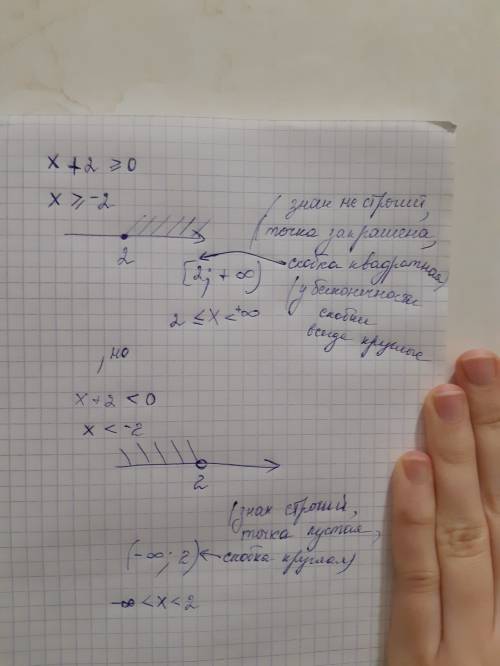 x + 2 ≥ 0
x ≥ -2
2
(знак не строгий,
точка закрашена,
скобка квадратная)
[2; + ∞)
(у бесконечности
скобки
всегда круглые
2 ≤ x < +∞
, но
x + 2 < 0
x < -2
2
(знак строгий,
точка пустая,
скобка круглая)
(-∞; 2)
-∞ < x < 2